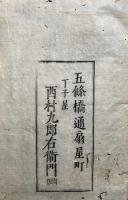 五條橋通扇屋町
丁子屋
西村九郎右衞門